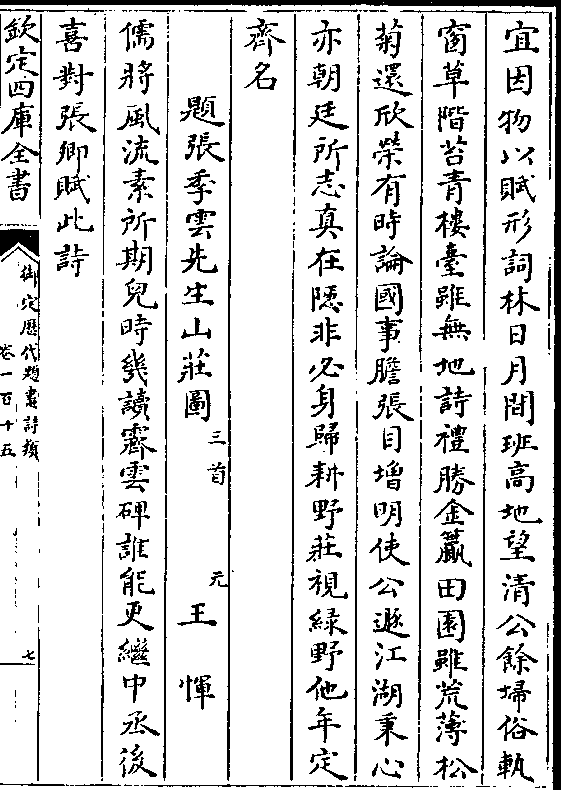 宜因物以賦形詞林日月間班高地望清公餘埽俗軌
窗草階苔青樓臺雖無地詩禮勝金籯田園雖荒薄松
菊還欣榮有時論國事膽張目增明使公遯江湖秉心
亦朝廷所志真在隱非必身歸耕野莊視綠野他年定
齊名
題張季雲先生山莊圖三首 元 王惲
儒將風流素所期兒時幾讀霽雲碑誰能更繼中丞後
喜對張卿賦此詩
欽定四庫全書
御定歷代題畫詩類
卷一百十五
七